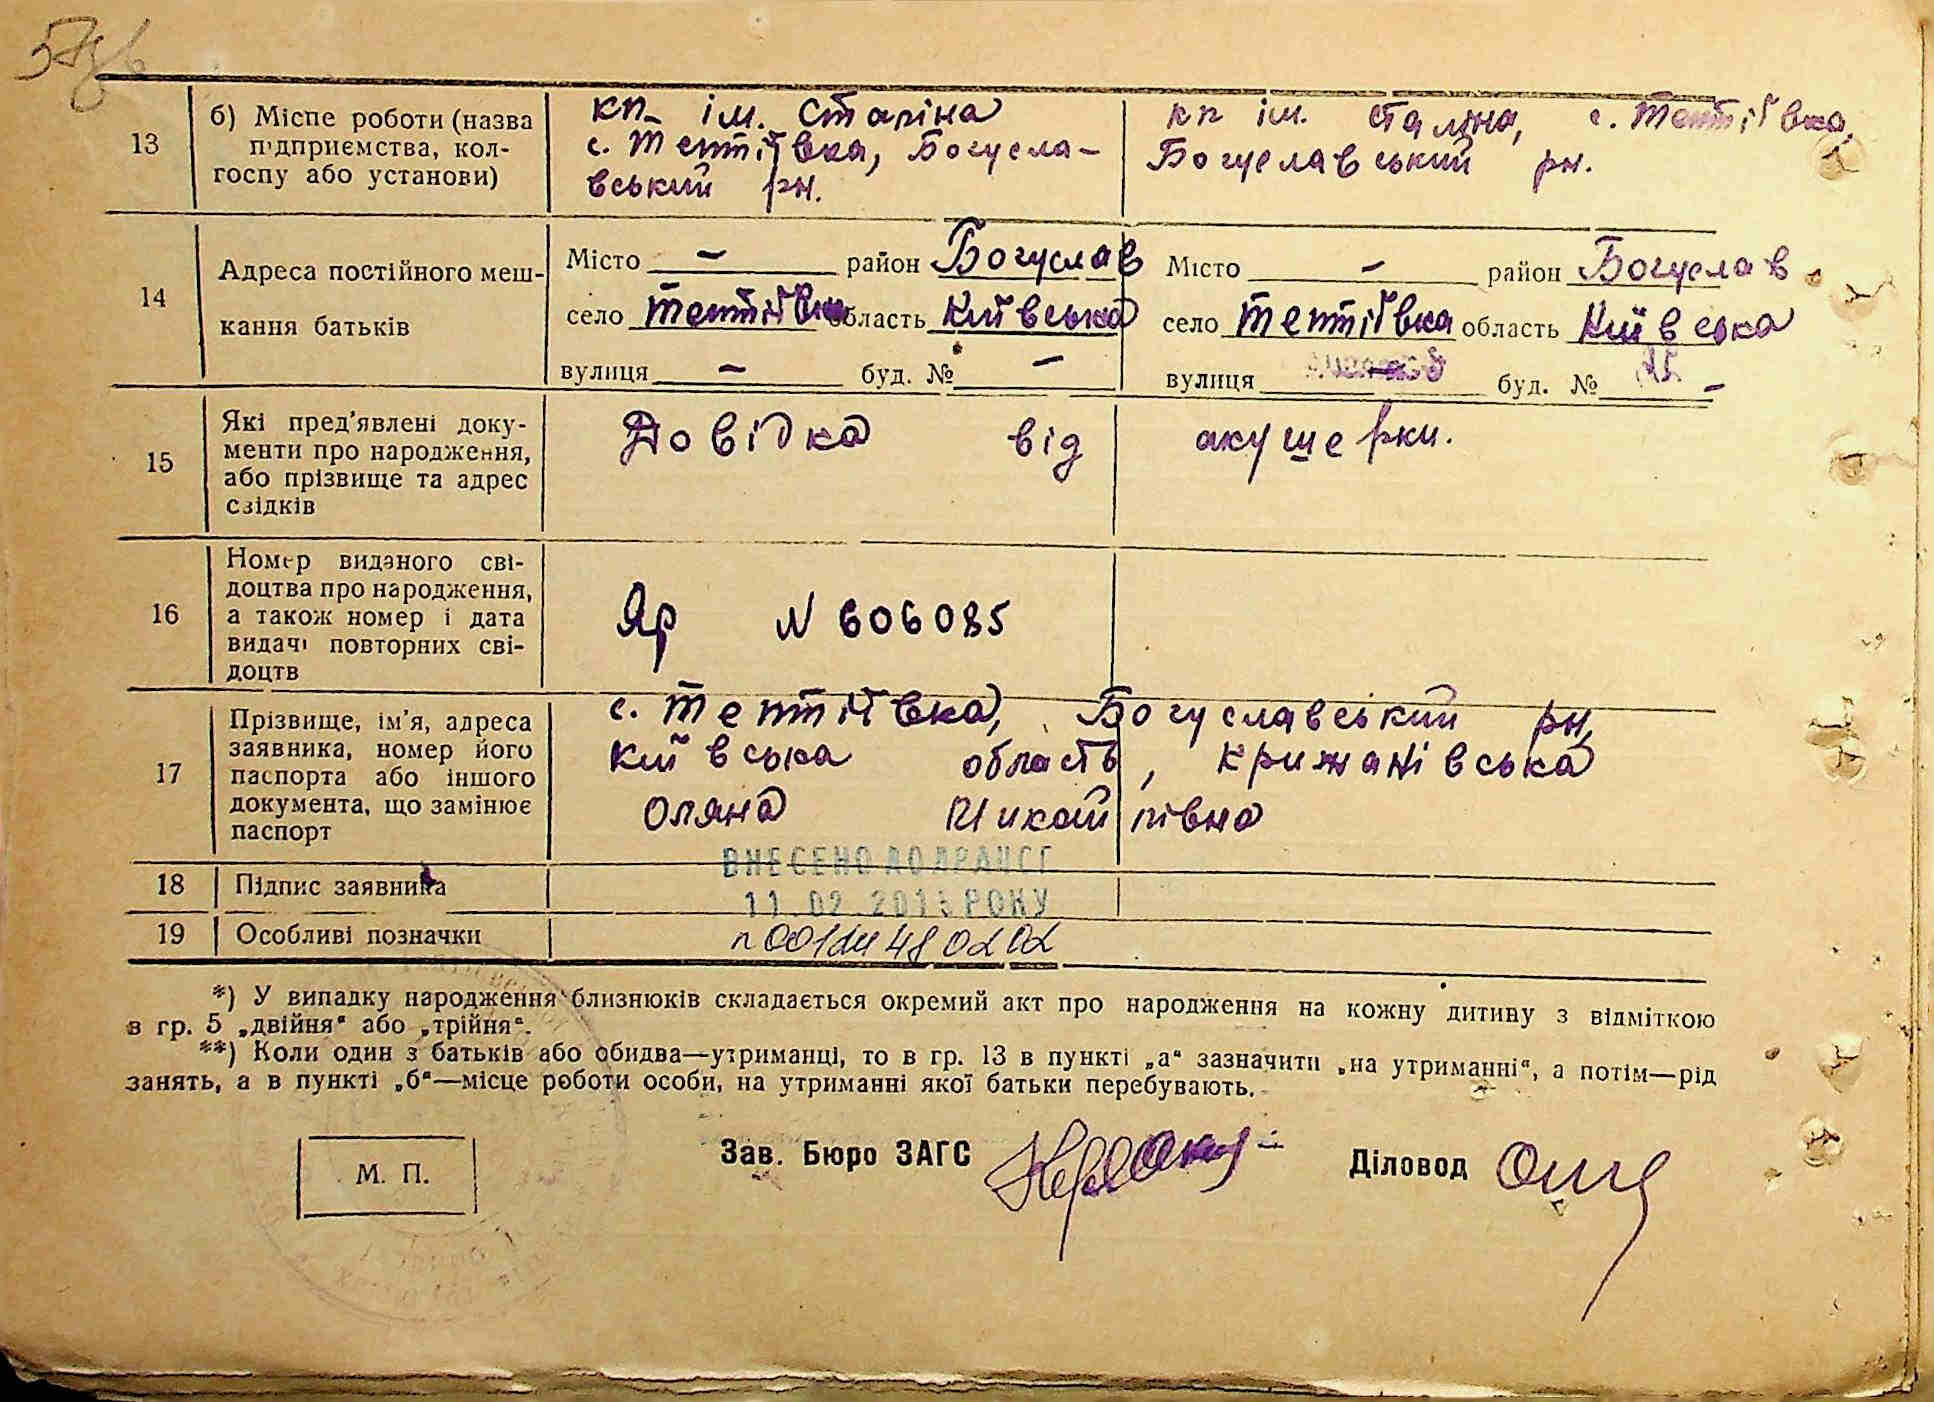 13
б) Місце роботи (назва
підприємства, кол-
госпу або установи)
кп ім. Сталіна
с. Тептіївка, Богусла-
вський рн.
кп ім. Сталіна, с. Тептіївка,
Богуславський рн.
14
Адреса постійного меш-
кання батьків
Місто — район Богуслав
село Тептіївка область Київська
вулиця — буд. № —
Місто — район Богуслав
село Тептіївка область Київська
вулиця буд. № —
15
Які пред'явлені доку-
менти про народження,
або прізвище та адрес
свідків
Довідка від акушерки.
16
Номер виданого сві-
доцтва про народження,
а також номер і дата
видачі повторних сві-
доцтв
Яр N 606085
17
Прізвище, ім'я, адреса
заявника, номер його
паспорта або іншого
документа, що замінює
паспорт
с. Тептіївка, Богуславський рн,
Київська область, Крижанівська
Оляна
18 Підпис заявника
ВНЕСЕНО ДО ДРАЦСГ
11.02.2015 РОКУ
19 Особливі позначки
*) У випадку народження близнюків складається окремий акт про народження на кожну дитину з відміткою
в гр. 5 „двійня“ або „трійня“.
**) Коли один з батьків або обидва—утриманці, то в гр. 13 в пункті „а“ зазначити „на утриманні“, а потім—рід
занять, а в пункті „б“—місце роботи особи, на утриманні якої батьки перебувають.
М. П.
Зав. Бюро ЗАГС
Діловод